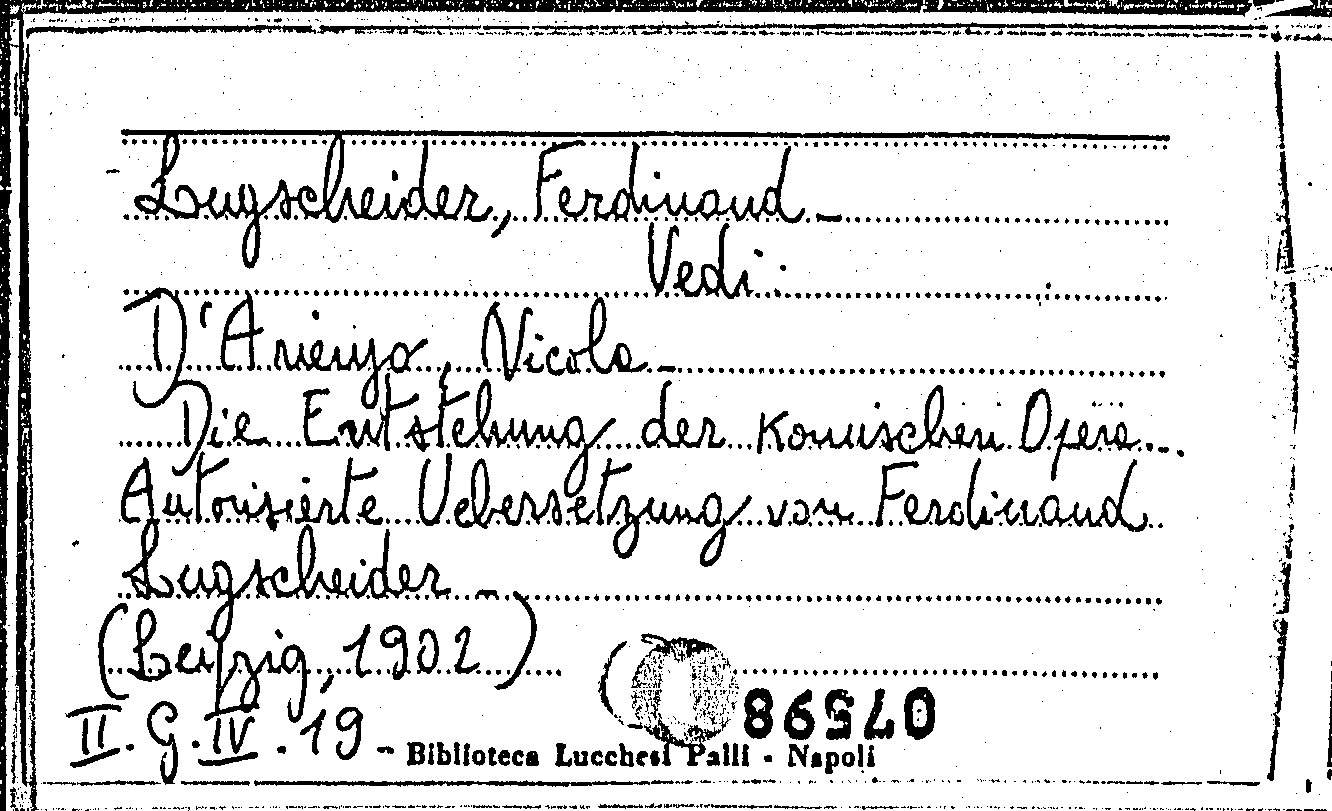 Lugscheider, Ferdinand -
Vedi:
D'Arienzo, Nicola -
Die Entstehung der Komischen Opera.
Autorisierte Uebersetzung von Ferdinand
Lugscheider -
(Leipzig, 1902)
II. G. IV. 19 - Biblioteca Lucchesi Palli - Napoli